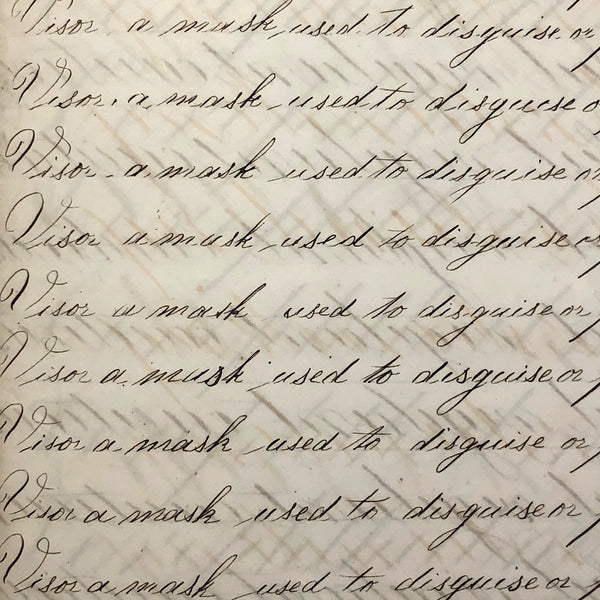 Visor a mask used to disguise or
Visor. a mask used to disguise
Visor - a mask used to disguise or
Visor a mask used to disguise or
Visor a mask used to disguise or
Visor a mask used to disguise or
Visor a mask used to disguise or
Visor a mask used to disguise or
Visor a mask used to disguise or